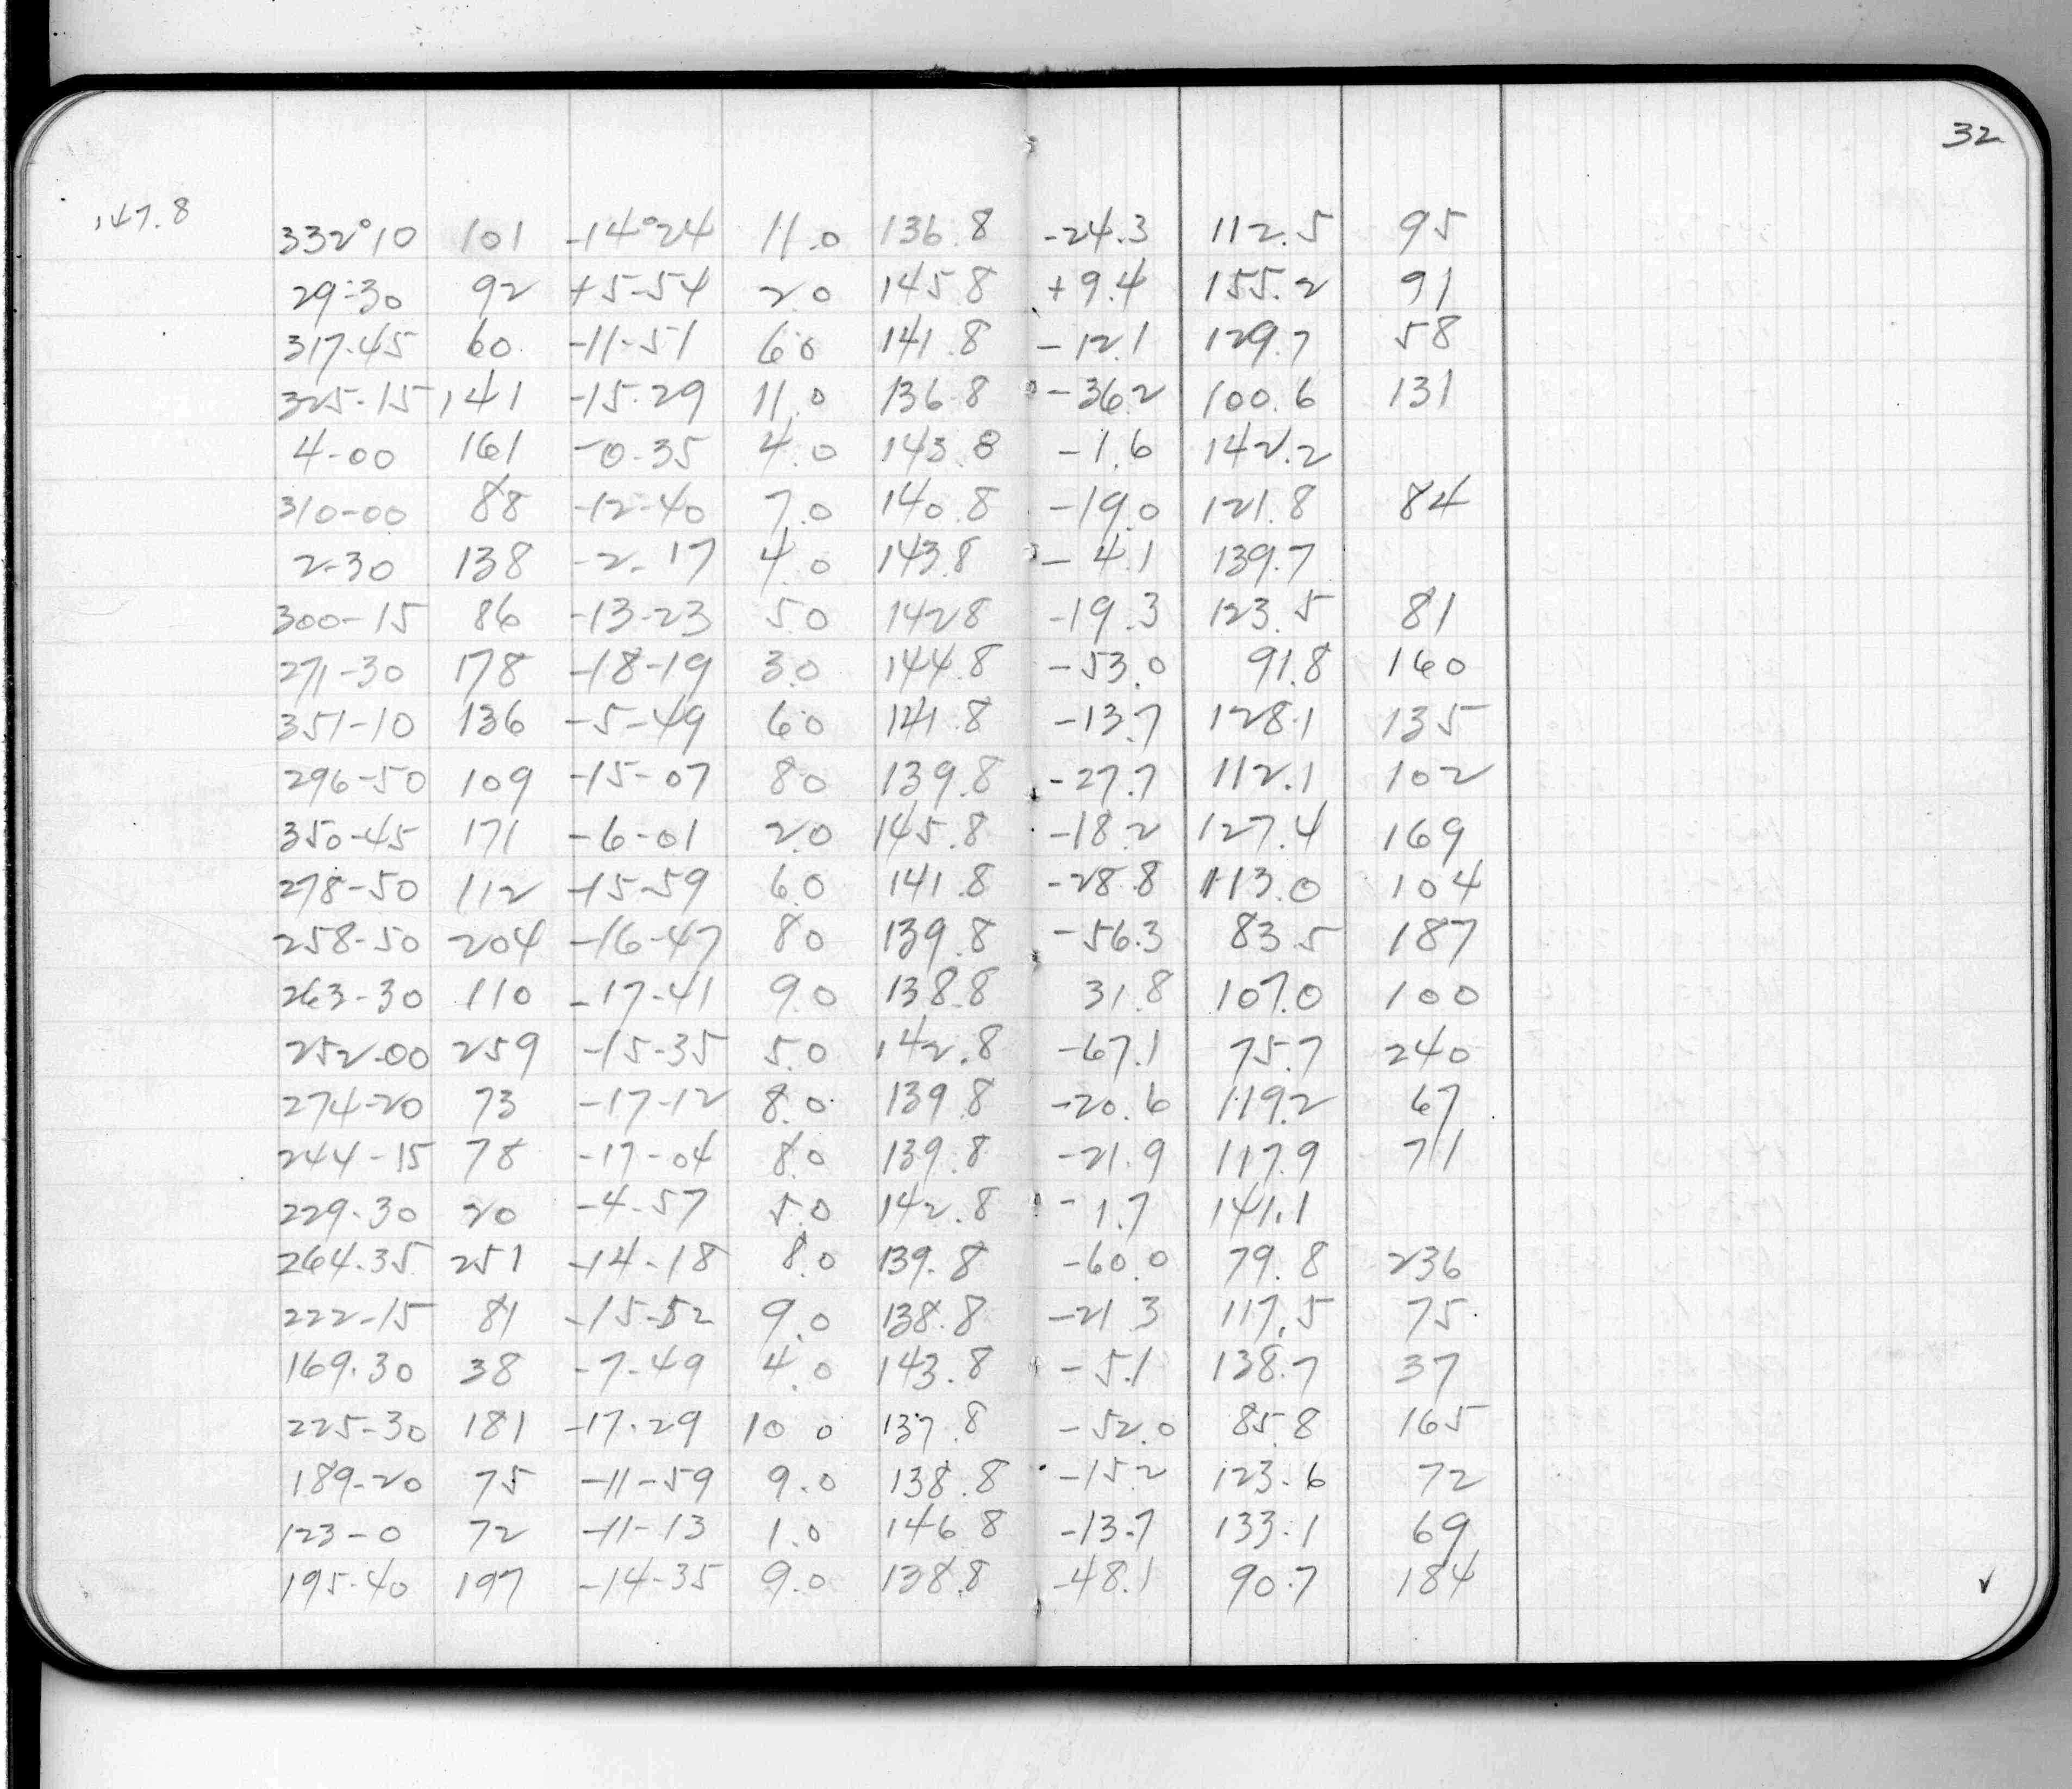 32
147.8
332°10 101 -14°24 11.0 136.8 -24.3 112.5 95
29-30 92 +5-54 2.0 145.8 +9.4 155.2 91
317-45 60 -11-51 6.0 141.8 -12.1 129.7 58
325-15 141 -15-29 11.0 136.8 -36.2 100.6 131
4-00 161 -0-35 4.0 143.8 -1.6 142.2
310-00 88 -12-40 7.0 140.8 -19.0 121.8 84
2-30 138 -2-17 4.0 143.8 -4.1 139.7
300-15 86 -13-23 5.0 142.8 -19.3 123.5 81
271-30 178 -18-19 3.0 144.8 -53.0 91.8 160
351-10 136 -5-49 6.0 141.8 -13.7 128.1 135
296-50 109 -15-07 8.0 139.8 -27.7 112.1 102
350-45 171 -6-01 2.0 145.8 -18.2 127.4 169
278-50 112 -15-59 6.0 141.8 -28.8 113.0 104
258-50 204 -16-47 8.0 139.8 -56.3 83.5 187
263-30 110 -17-41 9.0 138.8 31.8 107.0 100
252-00 259 -15-35 5.0 142.8 -67.1 75.7 240
274-20 73 -17-12 8.0 139.8 -20.6 119.2 67
244-15 78 -17-04 8.0 139.8 -21.9 117.9 71
229-30 20 -4-57 5.0 142.8 -1.7 141.1
264-35 251 -14-18 8.0 139.8 -60.0 79.8 236
222-15 81 -15-52 9.0 138.8 -21.3 117.5 75
169-30 38 -7-49 4.0 143.8 -5.1 138.7 37
225-30 181 -17-29 10.0 137.8 -52.0 85.8 165
189-20 75 -11-59 9.0 138.8 -15.2 123.6 72
123-0 72 -11-13 1.0 146.8 -13.7 133.1 69
195-40 197 -14-35 9.0 138.8 -48.1 90.7 184